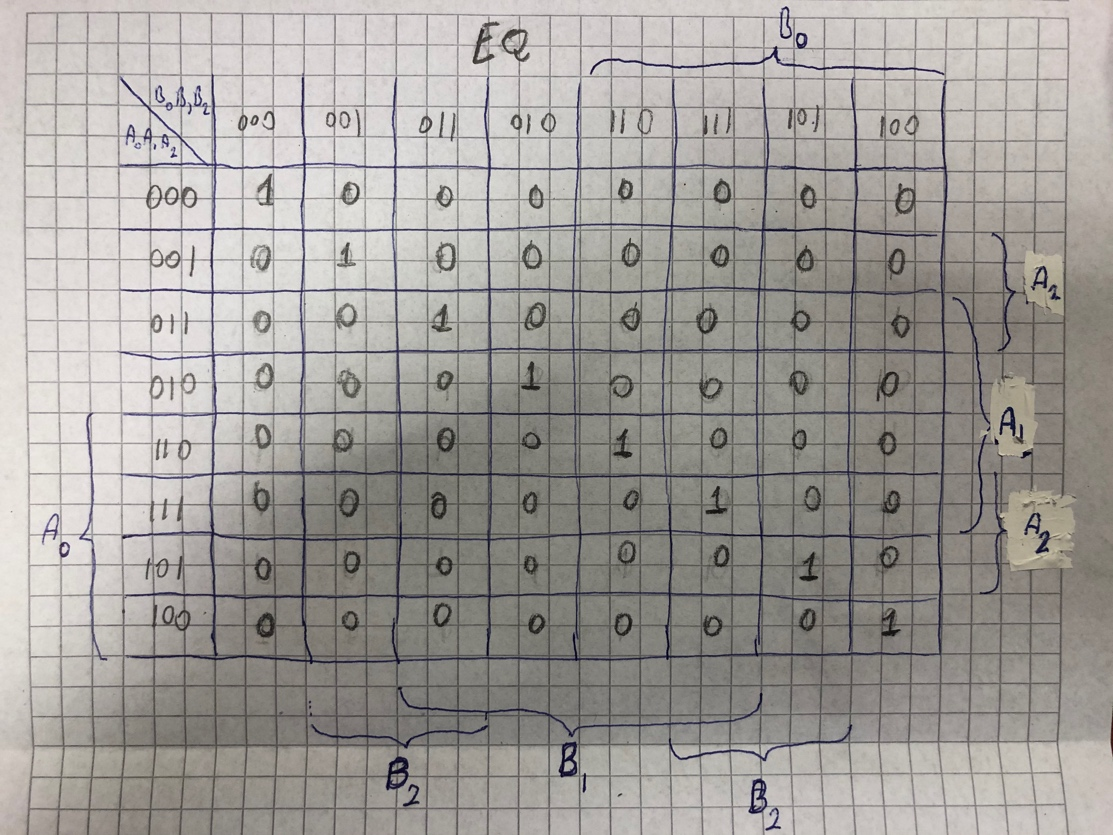 EQ
B₀
B₀B₁B₂
A₀A₁A₂
000 001 011 010 110 111 101 100
000 1 0 0 0 0 0 0 0
001 0 1 0 0 0 0 0 0
A₂
011 0 0 1 0 0 0 0 0
010 0 0 0 1 0 0 0 0
A₁
110 0 0 0 0 1 0 0 0
111 0 0 0 0 0 1 0 0
A₀
A₂
101 0 0 0 0 0 0 1 0
100 0 0 0 0 0 0 0 1
B₂ B₁ B₂